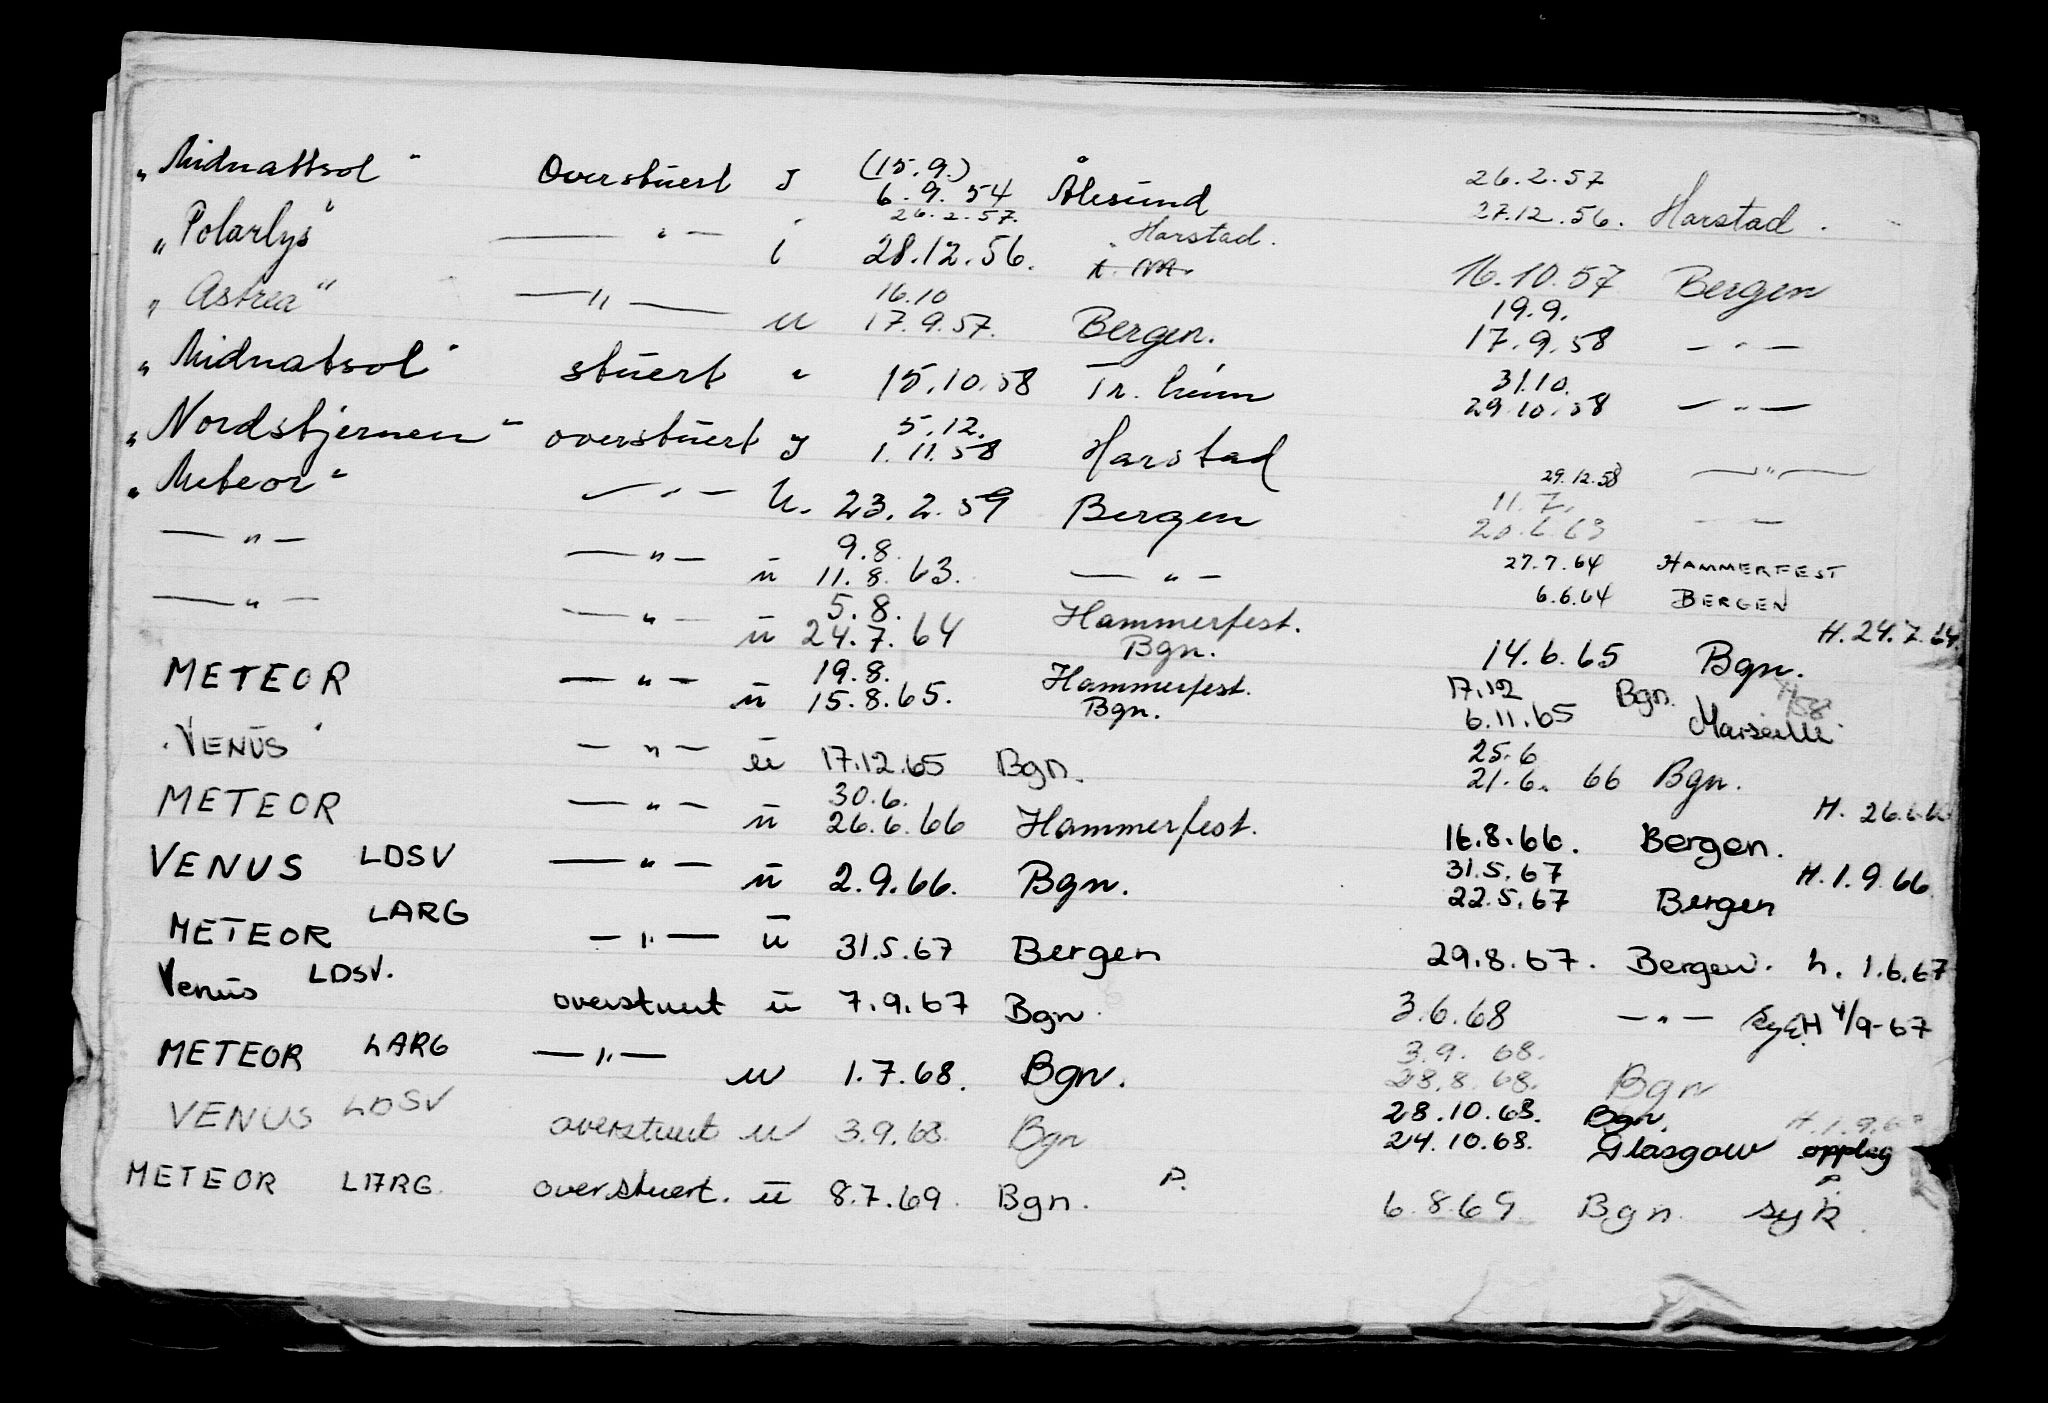 „Midnattsol" Overstuert I (15.9.) 6.9.54 Ålesund 26.2.57 27.12.56. Harstad.
„Polarlys" — " — i 26.2.57. 28.12.56. Harstad. 16.10.57 Bergen
„Astrea" — " — u 16.10 17.9.57. Bergen. 19.9. 17.9.58 — " —
„Midnatsol" stuert " 15.10.58 Tr.heim 31.10. 29.10.58 — " —
„Nordstjernen" overstuert I 5.12. 1.11.58 Harstad 29.12.58 — " —
„Meteor" — " — U. 23.2.59 Bergen 11.7. 20.6.63 — " —
— " — — " — u 9.8. 11.8.63. — " — 27.7.64 HAMMERFEST 6.6.64 BERGEN
— " — — " — u 5.8. 24.7.64 Hammerfest. Bgn. 14.6.65 Bgn. H. 24.7.64.
METEOR — " — u 19.8. 15.8.65. Hammerfest. Bgn. 17.12 Bgn. 6.11.65 Marseille
"VENUS" — " — u 17.12.65 Bgn. 25.6 21.6. 66 Bgn.
METEOR — " — u 30.6. 26.6.66 Hammerfest. 16.8.66. Bergen. H. 26.6.66
VENUS LDSV — " — u 2.9.66. Bgn. 31.5.67 22.5.67 Bergen H. 1.9.66
METEOR LARG — " — u 31.5.67 Bergen 29.8.67. Bergen. h. 1.6.67
Venus LDSV. overstuert u 7.9.67 Bgn. 3.6.68 — " — syk. H 4/9-67
METEOR LARG — " — u 1.7.68. Bgn. 3.9. 68. 28.8.68. Bgn
VENUS LDSV overstuert u 3.9.68. Bgn 28.10.68. Bgn. 24.10.68. Glasgow opplag H. 1.9.68
METEOR LARG. overstuert. u 8.7.69. Bgn. P. 6.8.69 Bgn. syk P.